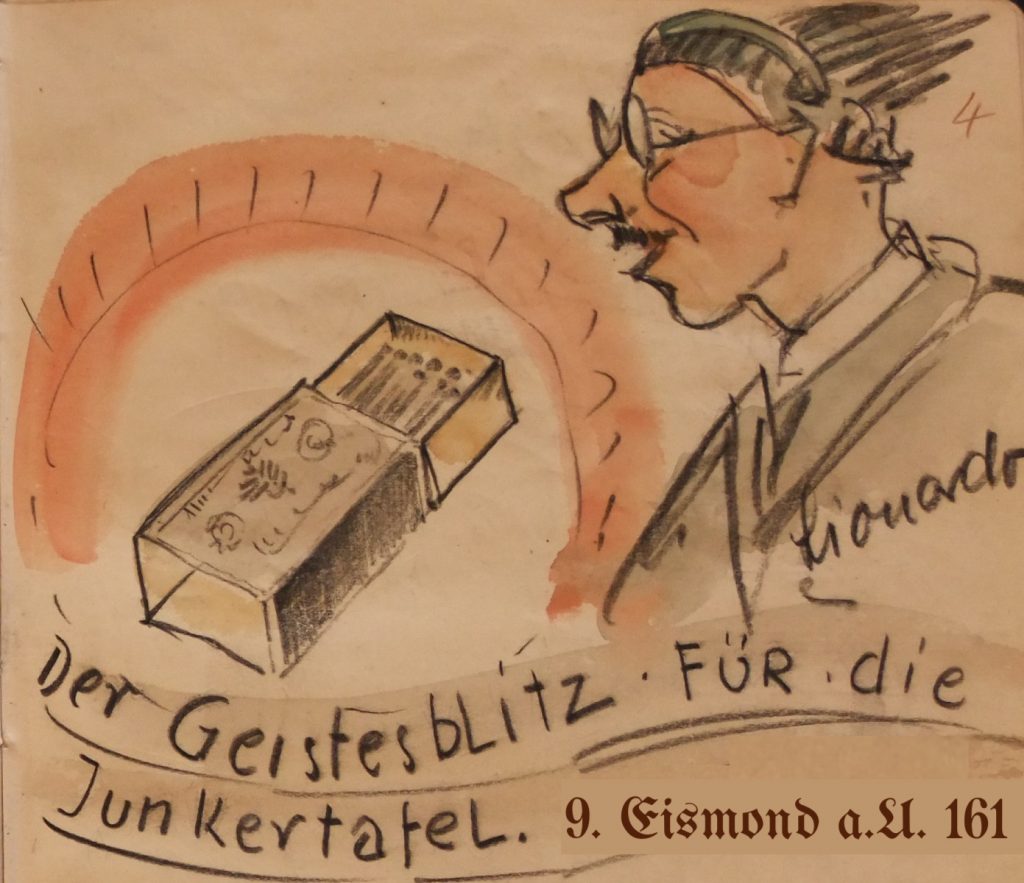 4
Lionardo
Der Geistesblitz · FÜR · die
Junkertafel.
9. Eismond a.U. 161